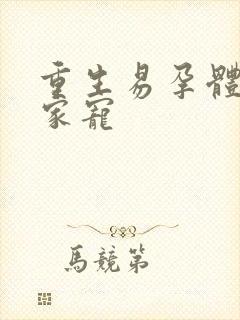 重生易孕體
家寵
馬競第